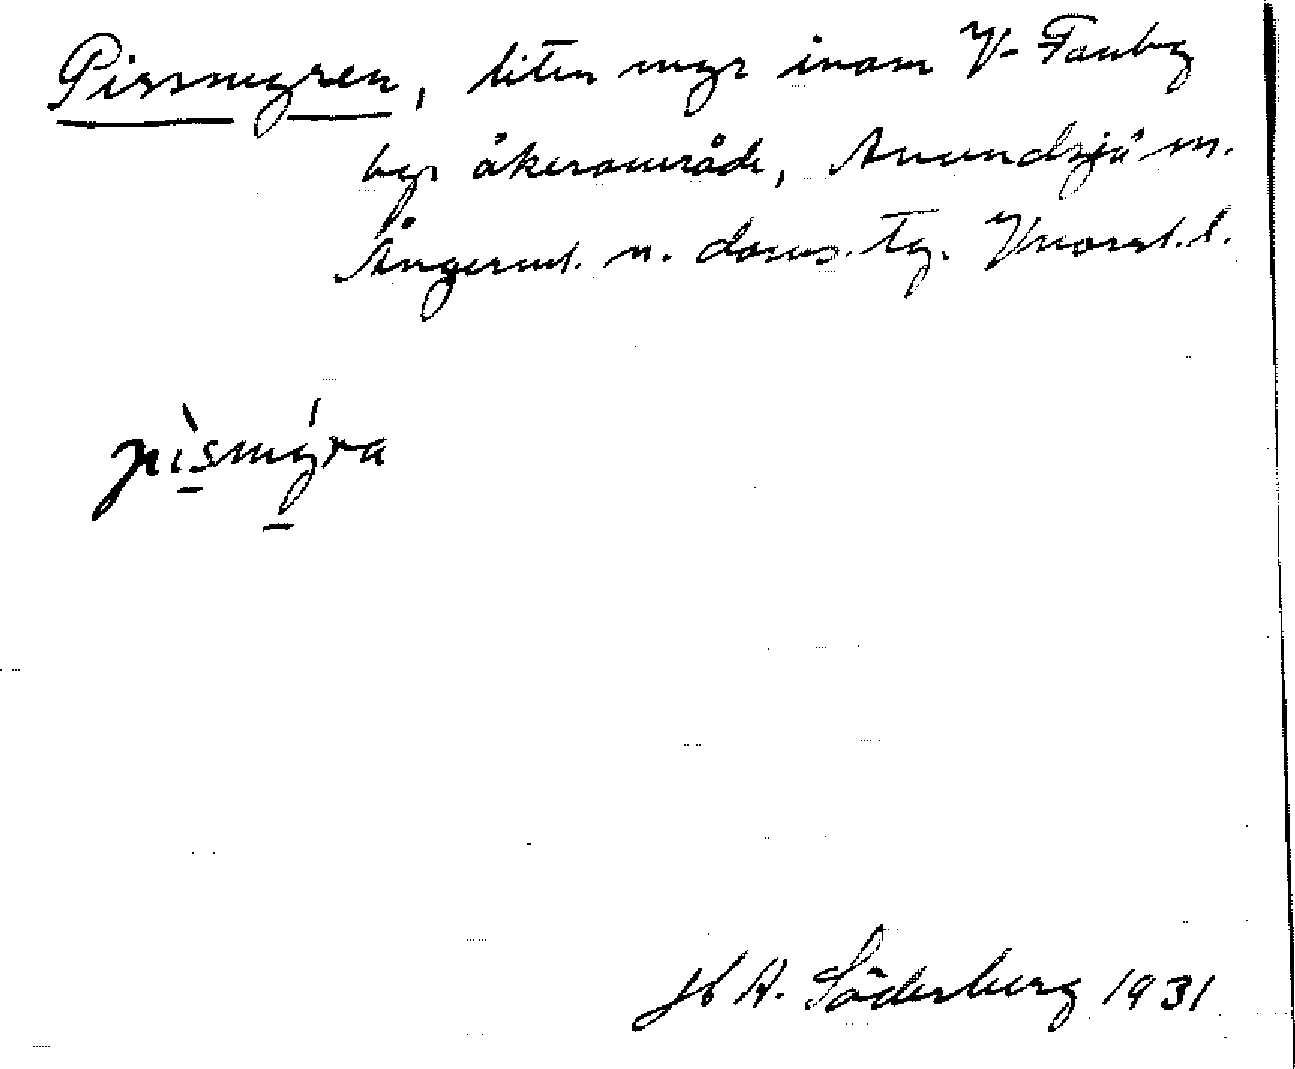 Pissmyren, liten myr inom V. Fanby
bys åkerområde, Anundsjö sn.
Ångerml. n. doms. Tg. Vnorrl. l.
pìsmýra
A. Söderberg 1931